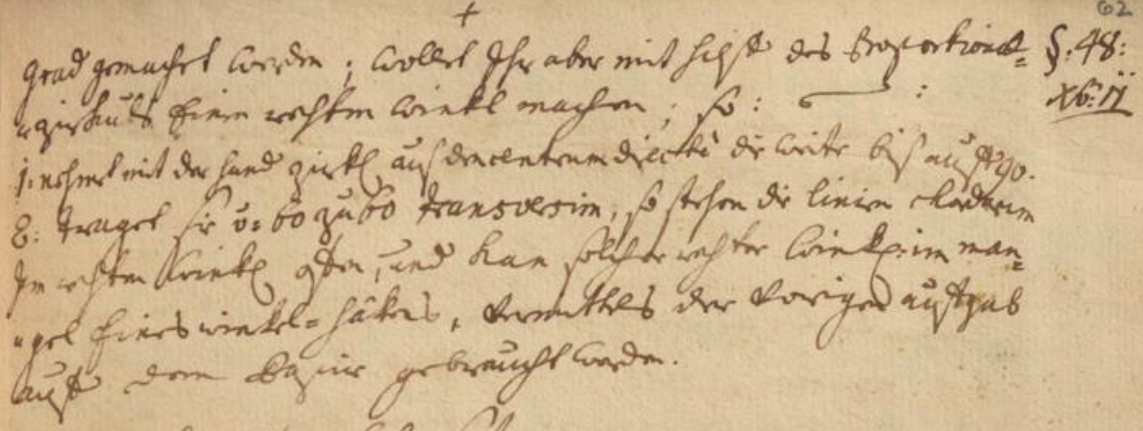 62
grad gemachet werden; wollet Ihr aber mit hilff des Proportional=
zirkuls Einen rechten winkl machen, so:
§. 48:
1: nehmet mit der hand zirkl aus dem centrum directè die weite biß auff 90.
2: traget sie v: 60 zu 60 transversim, so stehen die linien chordarum
Im rechten winkl offen, und kan solcher rechter winkl: im man=
gel Eines winkel=hakens, vermittels der vorigen auffgab
auff dem papier gebraucht werden.